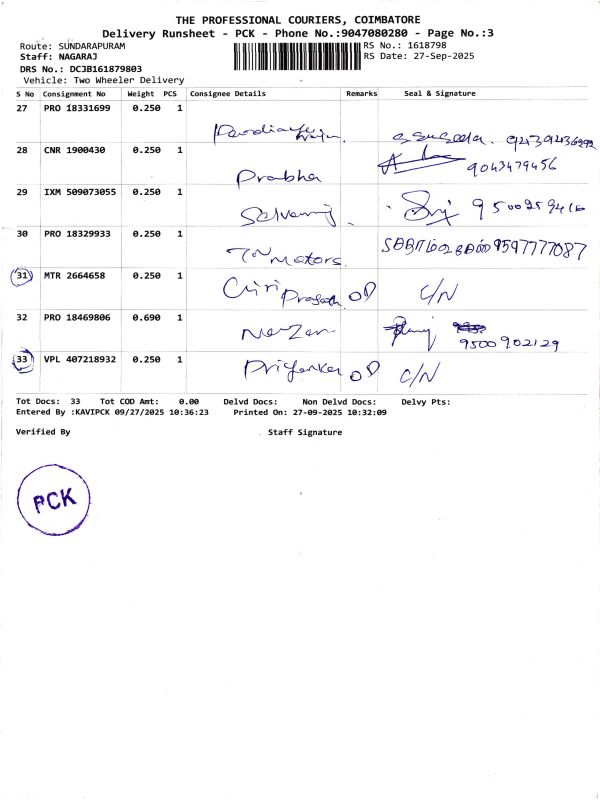 THE PROFESSIONAL COURIERS, COIMBATORE
Delivery Runsheet - PCK - Phone No.:9047080280 - Page No.:3
Route: SUNDARAPURAM RS No.: 1618798
Staff: NAGARAJ RS Date: 27-Sep-2025
DRS No.: DCJB161879803
Vehicle: Two Wheeler Delivery
S No Consignment No Weight PCS Consignee Details Remarks Seal & Signature
27 PRO 18331699 0.250 1
28 CNR 1900430 0.250 1 Prabha 9043479456
29 IXM 509073055 0.250 1 Selvaraj
30 PRO 18329933 0.250 1 TN Motors. 9597777087
31 MTR 2664658 0.250 1 Giri Prasath OD C/N
32 PRO 18469806 0.690 1 9500902129
33 VPL 407218932 0.250 1 Priyanka OD C/N
Tot Docs: 33 Tot COD Amt: 0.00 Delvd Docs: Non Delvd Docs: Delvy Pts:
Entered By :KAVIPCK 09/27/2025 10:36:23 Printed On: 27-09-2025 10:32:09
Verified By Staff Signature
PCK